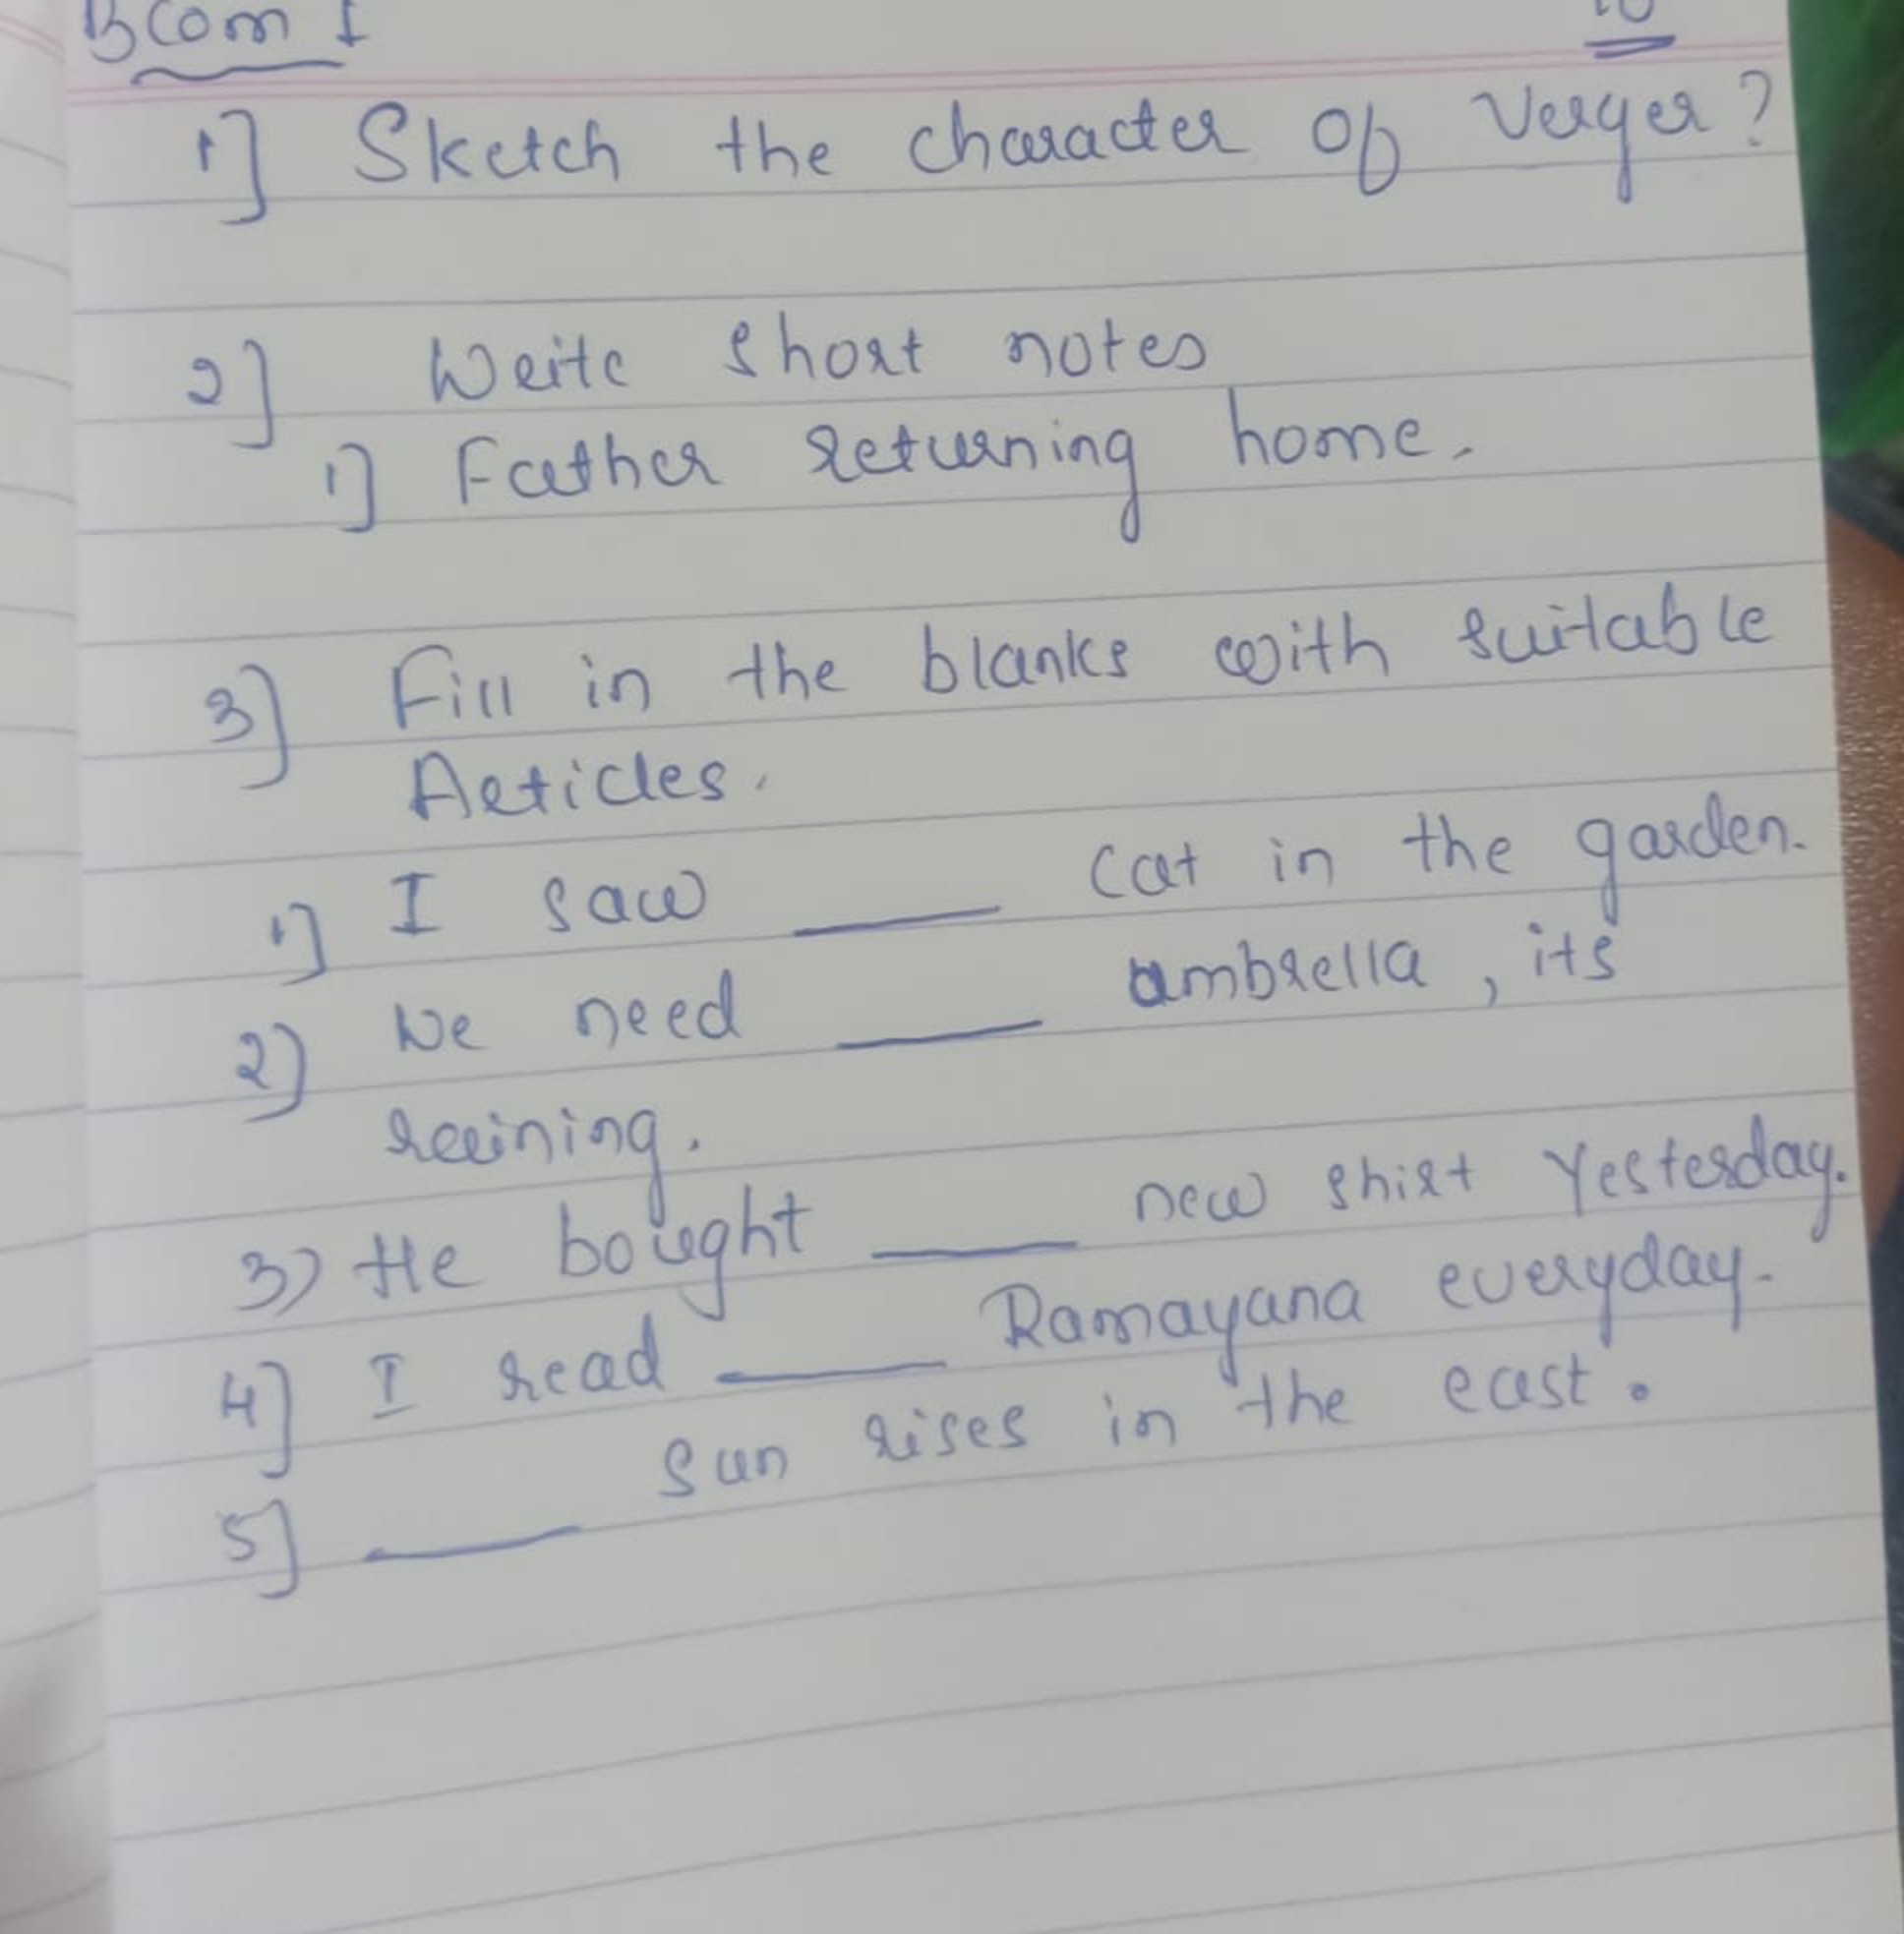 BCom I 10
1] Sketch the character of Verger?
2] Write short notes
1] Father returning home.
3] Fill in the blanks with suitable
Articles.
1] I saw ____ cat in the garden.
2) We need ____ umbrella, its
raining.
3) He bought ____ new shirt Yesterday.
4] I read ____ Ramayana everyday.
5] ____ sun rises in the east.